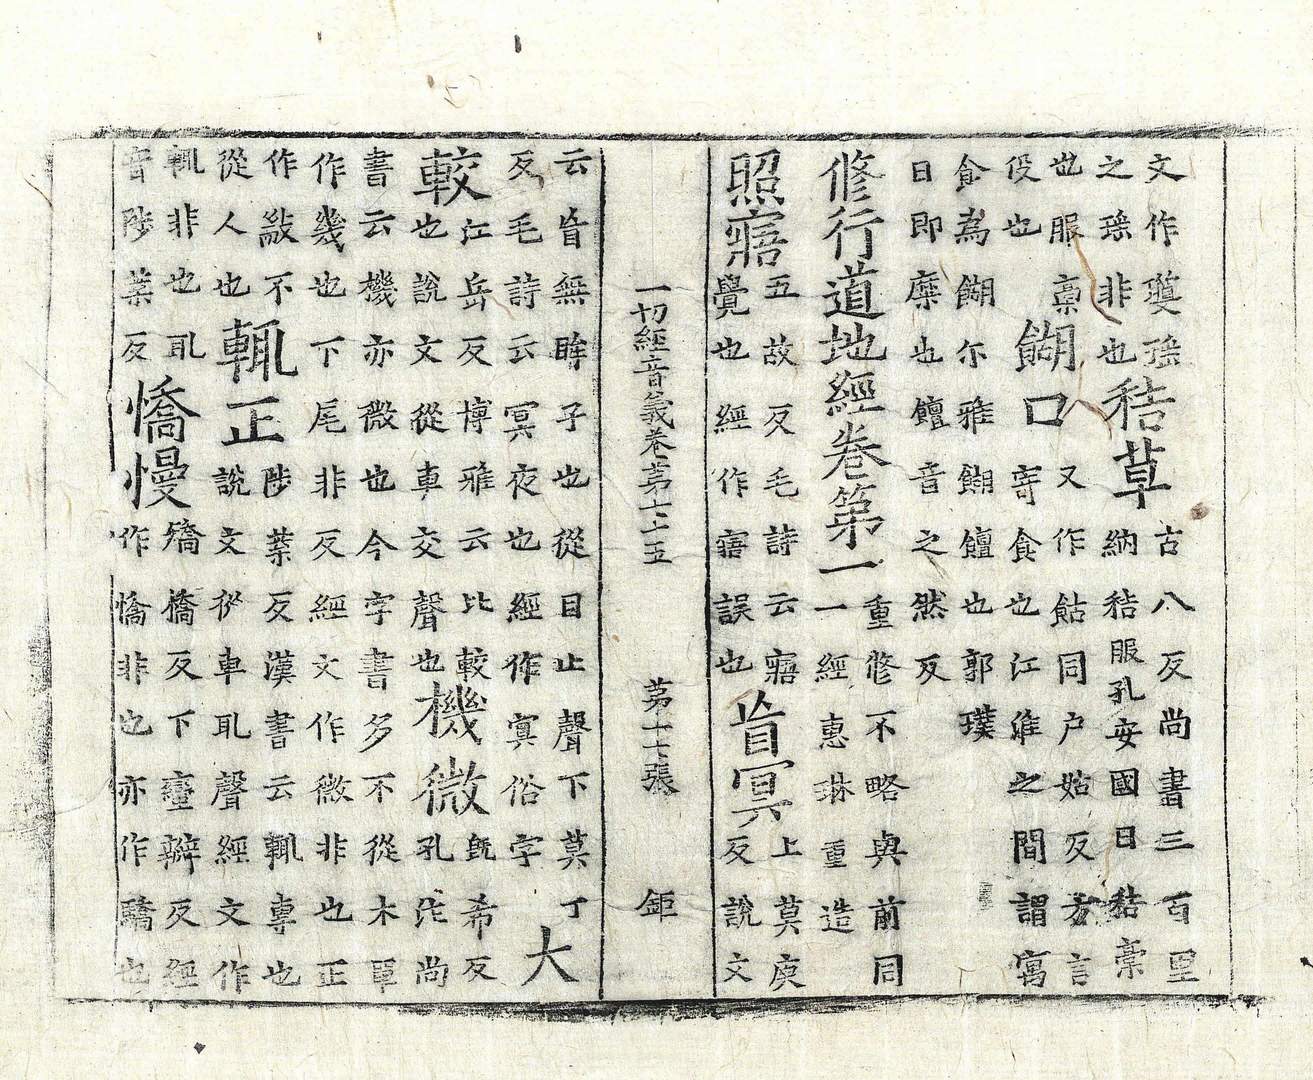 文作璇瑶
之瑶非也
秸草
古八反尚書三百里
納秸服孔安國曰秸稾
也服稾
役也
餬口
又作䬶同户姑反方言
寄食也江淮之間謂寓
食為餬尒雅餬饘也郭璞
曰即糜也饘音之然反
修行道地經卷第一
重修不略與前同
一經惠琳重造
照寤
五故反毛詩云寤
覺也經作寤誤也
盲冥
上莫庚
反說文
一切經音義卷第七十五 第十七張 鉅
云盲無眸子也從目亡聲下莫丁
反毛詩云冥夜也經作寘俗字
大
較
江岳反博雅云比較
也說文從車交聲也
機微
既希反
孔注尚
書云機亦微也今字書多不從木單
作幾也下尾非反經文作微非也正
作敳不
從人也
輒正
陟葉反漢書云輒專也
說文從車耴聲經文作
輙非也耴
音陟葉反
憍慢
矯憍反下蠻辦反經
作憍非也亦作驕也